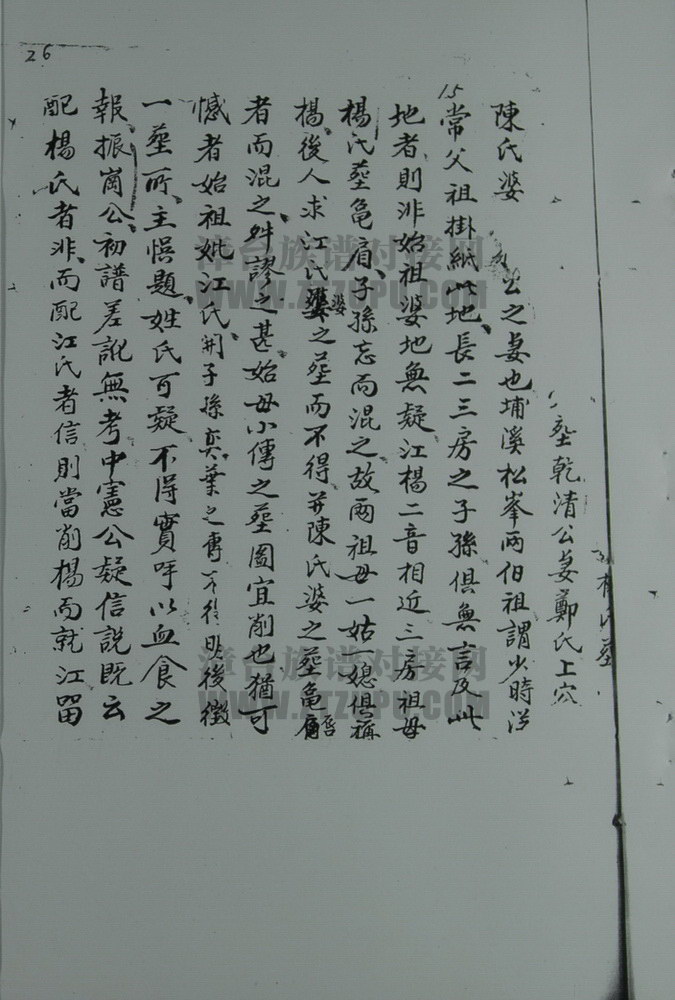 26
楊氏塟
塟乾清公妾鄭氏上穴
陳氏婆 公之妾也埔溪松峯两伯祖謂少時従
15
常父祖掛紙此地、長二三房之子孫俱無言及此
地者、則非始祖婆地無疑江楊二音相近三房祖母
楊氏塟龜肩、子孫忘而混之、故兩祖母一姑一媳俱稱
楊、後人求江氏婆之塟而不得、并陳氏婆之塟龜肩
者而混之、舛謬之甚、始母小傳之塟圖宜削也猶可
憾者始祖妣江氏、開子孫奕葉之傳不後明後徵
一塟所、主悞題、姓氏可疑不得實呼以血食之
報、振崗公、初譜差訛無考中憲公疑信説既云
配楊氏者非、而配江氏者信則當削楊而就江留
漳台族谱对接网
WWW.ZTZUPU.COM
漳台族谱对接网
WWW.ZTZUPU.COM